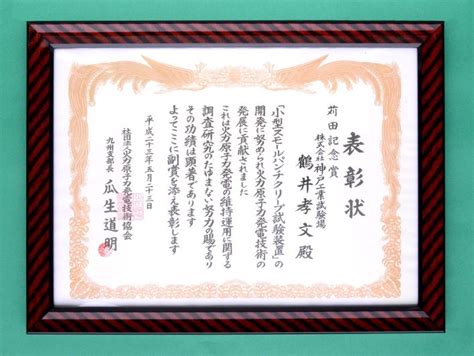 表彰状
苅田記念賞
株式会社神戸工業試験場
鶴井孝文殿
「小型スモールパンチクリープ試験装置」の
開発に努められ火力原子力発電技術の
発展に貢献されました
これは火力原子力発電の維持運用に関する
調査研究のたゆまない努力の賜であり
その功績は顕著であります
よってここに副賞を添え表彰します
平成二十三年五月二十三日
社団法人火力原子力発電技術協会
九州支部長 瓜生道明